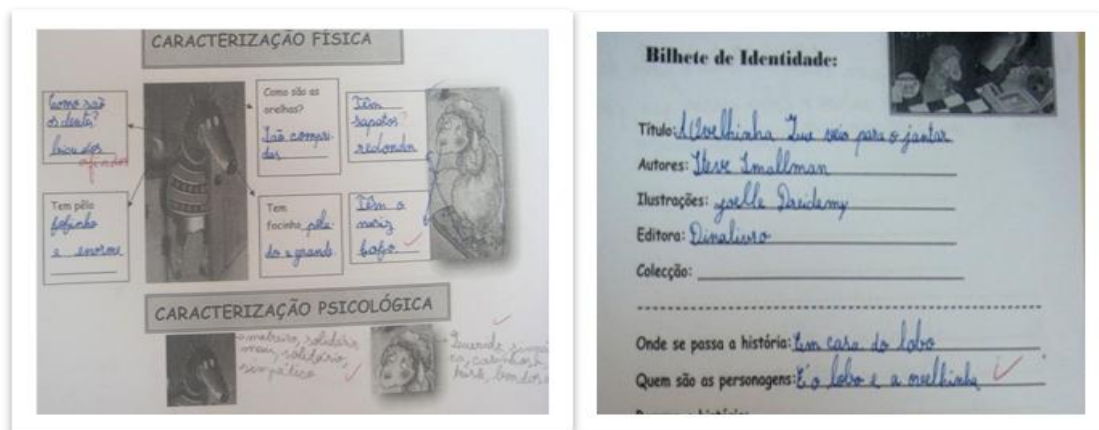 CARACTERIZAÇÃO FÍSICA
Como são
os dentes?
bicudos
afiados
Como são as
orelhas?
São compri-
das
Têm
sapatos
redondos
Tem pêlo
fofinho
e enorme
Tem
focinho pelu-
do e grande
Têm o
nariz
fofo.
CARACTERIZAÇÃO PSICOLÓGICA
matreiro, solidário
mau, solidário,
simpático
simpá
ca, carinhosa
bondosa
Bilhete de Identidade:
Título: A Ovelhinha Que veio para o jantar
Autores: Steve Smallman
Ilustrações: Joelle Dreidemy
Editora: Dinalivro
Colecção:
Onde se passa a história: Em casa do lobo
Quem são as personagens: É o lobo e a ovelhinha